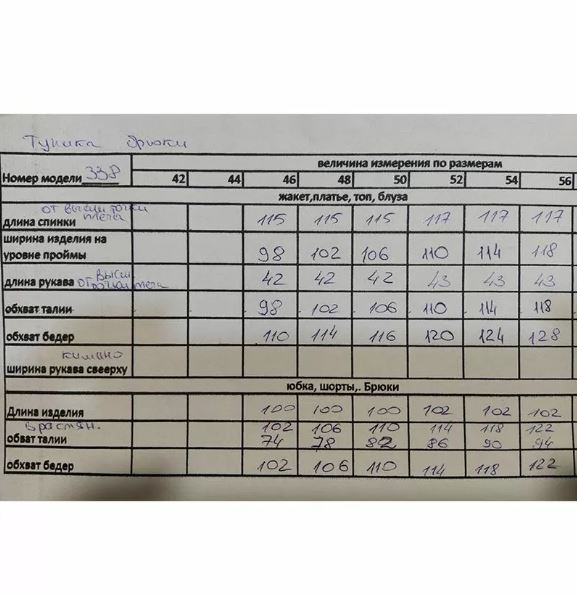 Туника брюки
величина измерения по размерам
Номер модели 338 42 44 46 48 50 52 54 56
жакет,платье, топ, блуза
от высш точки
длина спинки плеча 115 115 115 117 117 117
ширина изделия на
уровне проймы 98 102 106 110 114 118
высш
длина рукава от точки плеча 42 42 42 43 43 43
обхват талии 98 102 106 110 114 118
обхват бедер 110 114 116 120 124 128
кимоно
ширина рукава свеерху
юбка, шорты,. Брюки
Длина изделия 100 100 100 102 102 102
в растян. 102 106 110 114 118 122
обват талии 74 78 82 86 90 94
обхват бедер 102 106 110 114 118 122